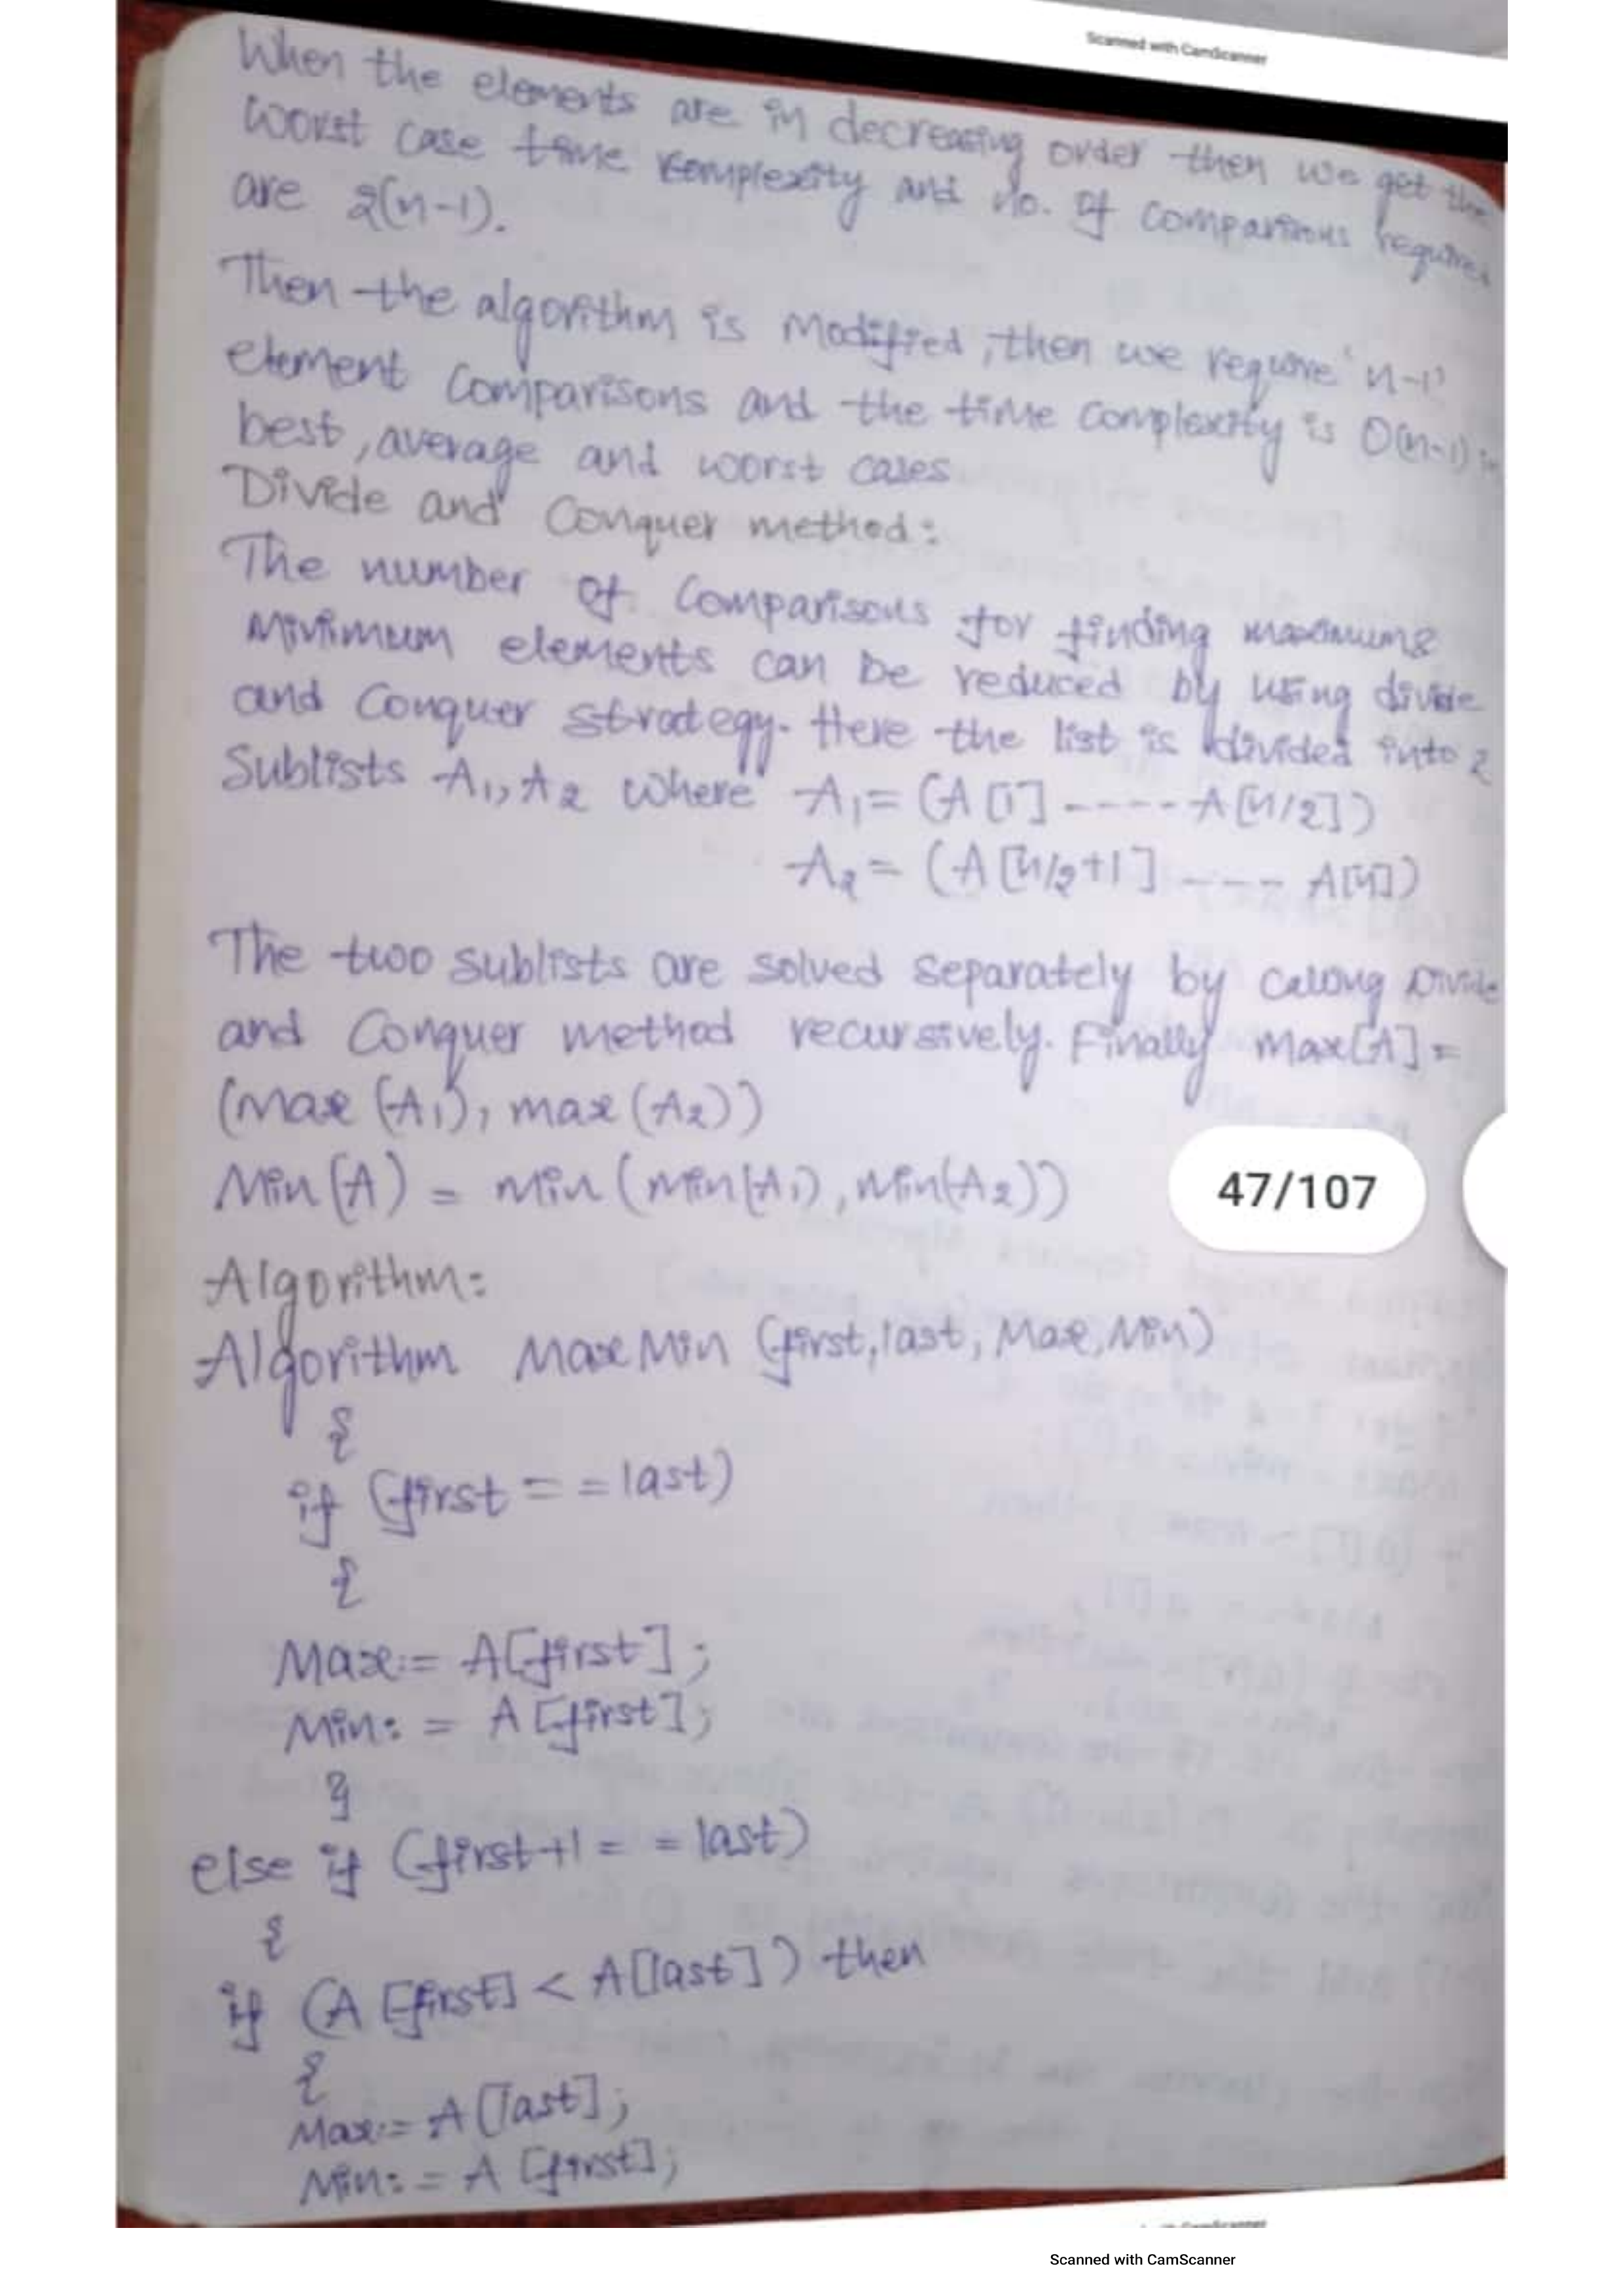 Scanned with CamScanner
When the elements are in decreasing order then we get the
worst case time complexity and no. of comparisons required
are 2(n-1).
Then the algorithm is Modified, then we require 'n-1'
element comparisons and the time complexity is O(n-1) in
best, average and worst cases
Divide and Conquer method:
The number of comparisons for finding maximum &
Minimum elements can be reduced by using divide
and Conquer strategy. Here the list is divided into 2
Sublists A1, A2 where A1 = (A[1] ----- A[n/2])
A2 = (A[n/2+1] --- A[n])
The two sublists are solved separately by Divide
and Conquer method recursively. Finally Max[A] =
(Max (A1), max (A2))
Min(A) = Min (Min(A1), Min(A2))
47/107
Algorithm:
Algorithm MaxMin (first, last, Max, Min)
{
if (first = = last)
{
Max:= A[first];
Min: = A[first];
}
else if (first+1 = = last)
{
if (A[first] < A[last]) then
{
Max:= A[last];
Min: = A[first];
Scanned with CamScanner